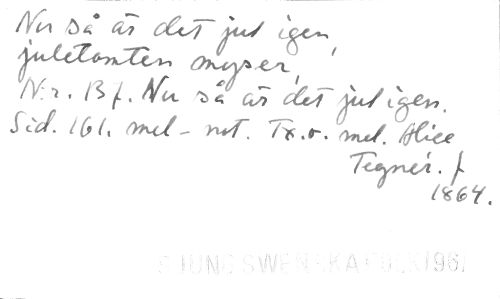 Nu så är det jul igen,
juletomten myser,
N:r. B f. Nu så är det jul igen.
Sid. 161. mel-not. Tx. o. mel. Alice
Tegnér. f
1864.
SJUNG SWENSKA FOLK 1961